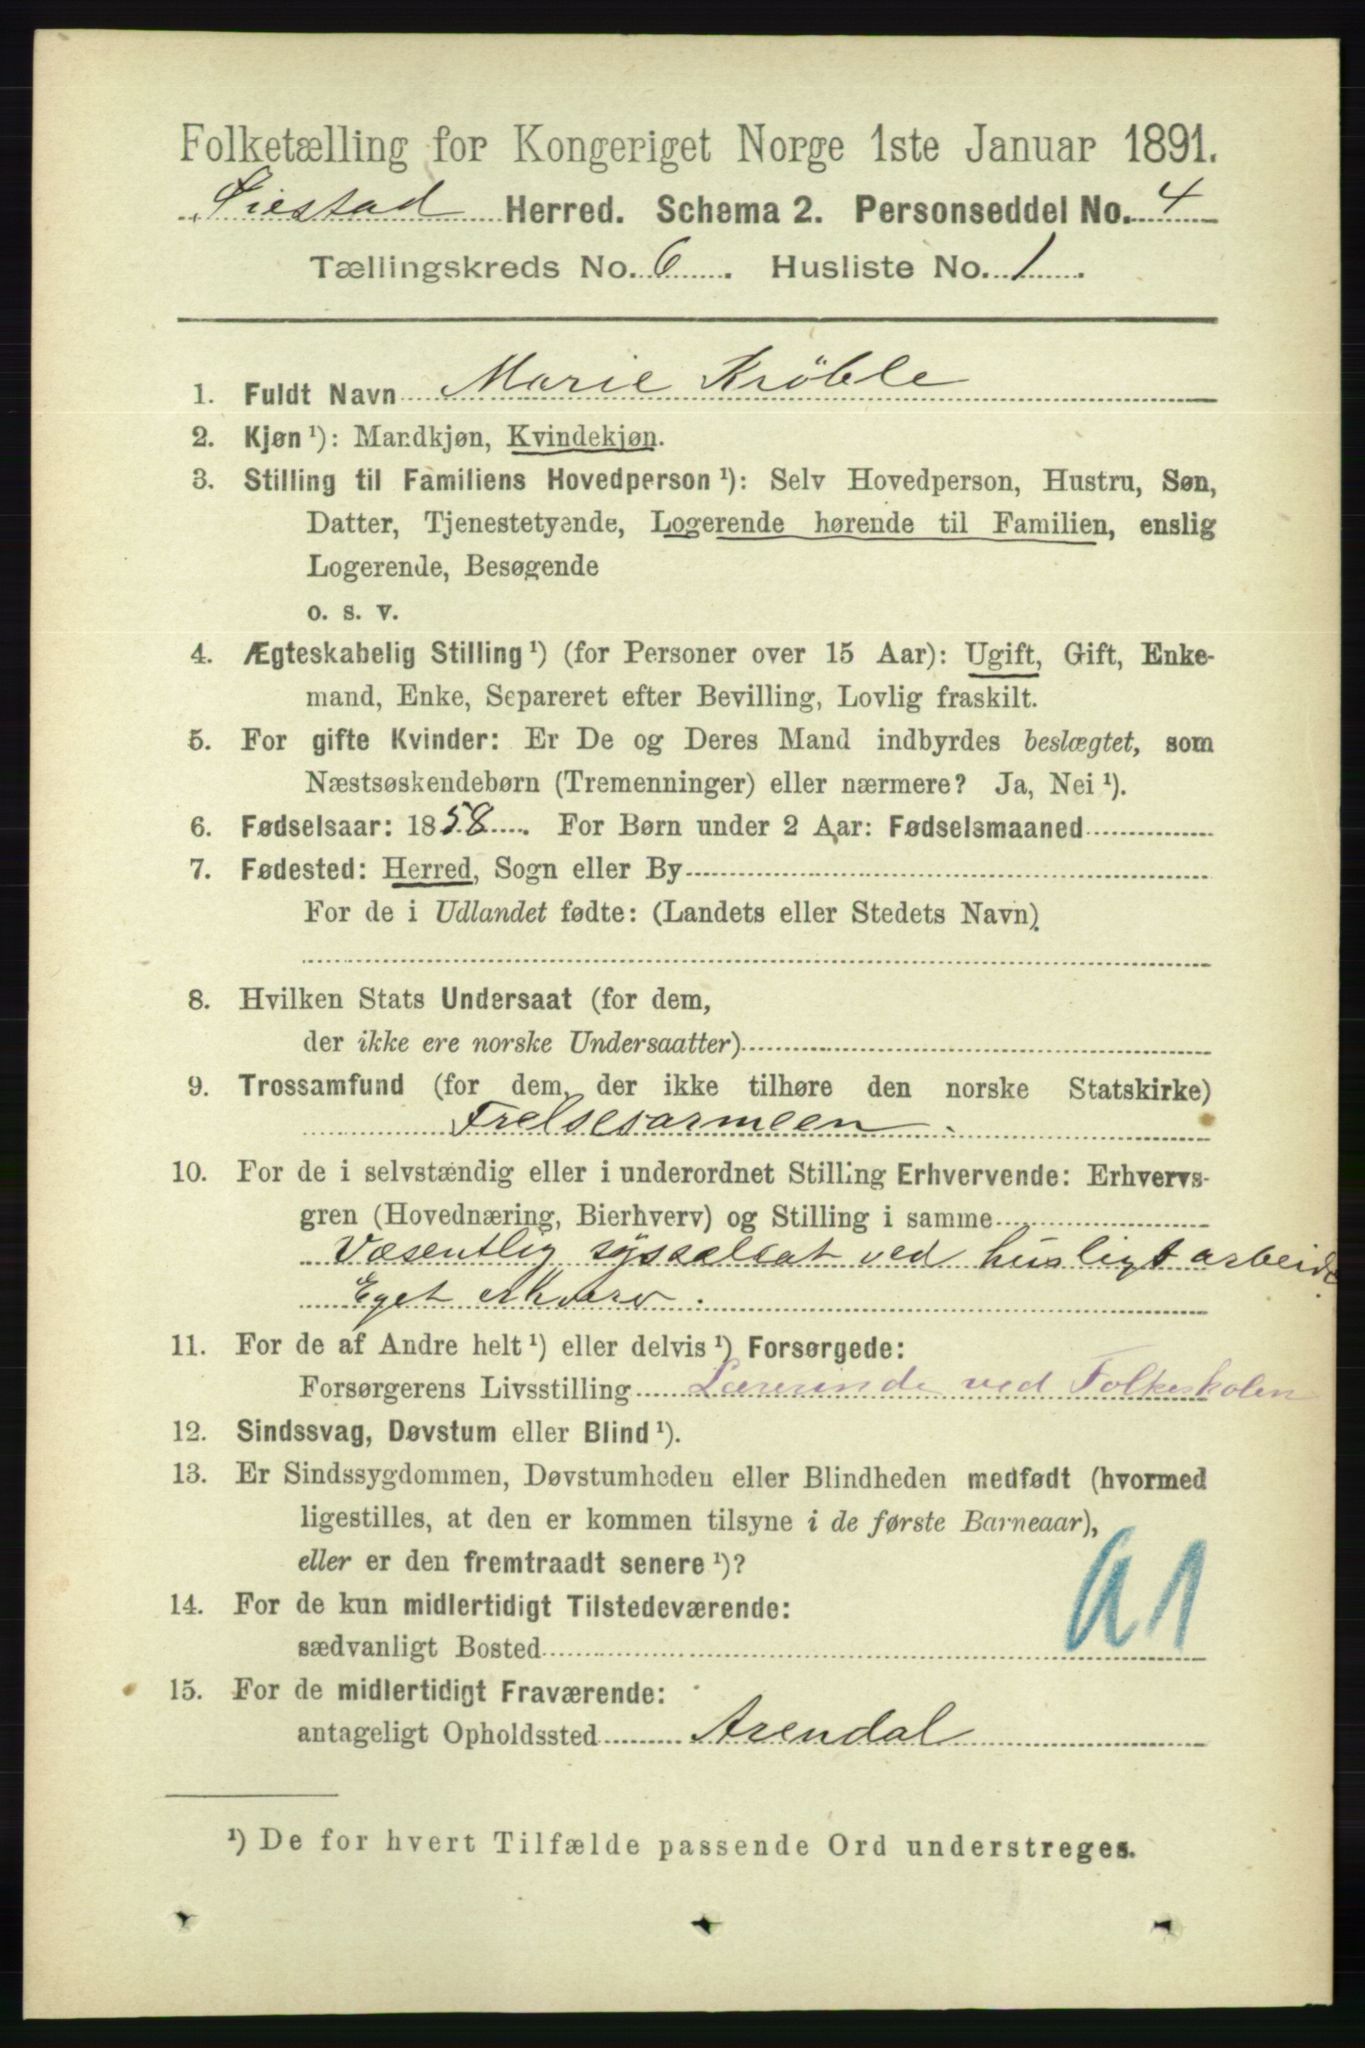 Folketælling for Kongeriget Norge 1ste Januar 1891.
Øiestad Herred. Schema 2. Personseddel No. 4
Tællingskreds No. 6. Husliste No. 1.
1. Fuldt Navn Marie Krøble
2. Kjøn ¹): Mandkjøn, Kvindekjøn.
3. Stilling til Familiens Hovedperson ¹): Selv Hovedperson, Hustru, Søn,
Datter, Tjenestetyende, Logerende hørende til Familien, enslig
Logerende, Besøgende
o. s. v.
4. Ægteskabelig Stilling ¹) (for Personer over 15 Aar): Ugift, Gift, Enke-
mand, Enke, Separeret efter Bevilling, Lovlig fraskilt.
5. For gifte Kvinder: Er De og Deres Mand indbyrdes beslægtet, som
Næstsøskendebørn (Tremenninger) eller nærmere? Ja, Nei ¹).
6. Fødselsaar: 1858. For Børn under 2 Aar: Fødselsmaaned
7. Fødested: Herred, Sogn eller By
For de i Udlandet fødte: (Landets eller Stedets Navn)
8. Hvilken Stats Undersaat (for dem,
der ikke ere norske Undersaatter)
9. Trossamfund (for dem, der ikke tilhøre den norske Statskirke)
Frelsesarmeen.
10. For de i selvstændig eller i underordnet Stilling Erhvervende: Erhvervs-
gren (Hovednæring, Bierhverv) og Stilling i samme
Væsentlig sysselsat ved husligt arbeide
Eget erhverv.
11. For de af Andre helt ¹) eller delvis ¹) Forsørgede:
Forsørgerens Livsstilling Lærerinde ved Folkeskolen
12. Sindssvag, Døvstum eller Blind ¹).
13. Er Sindssygdommen, Døvstumheden eller Blindheden medfødt (hvormed
ligestilles, at den er kommen tilsyne i de første Barneaar),
eller er den fremtraadt senere ¹)?
14. For de kun midlertidigt Tilstedeværende:
sædvanligt Bosted
a1
15. For de midlertidigt Fraværende:
antageligt Opholdssted Arendal
¹) De for hvert Tilfælde passende Ord understreges.